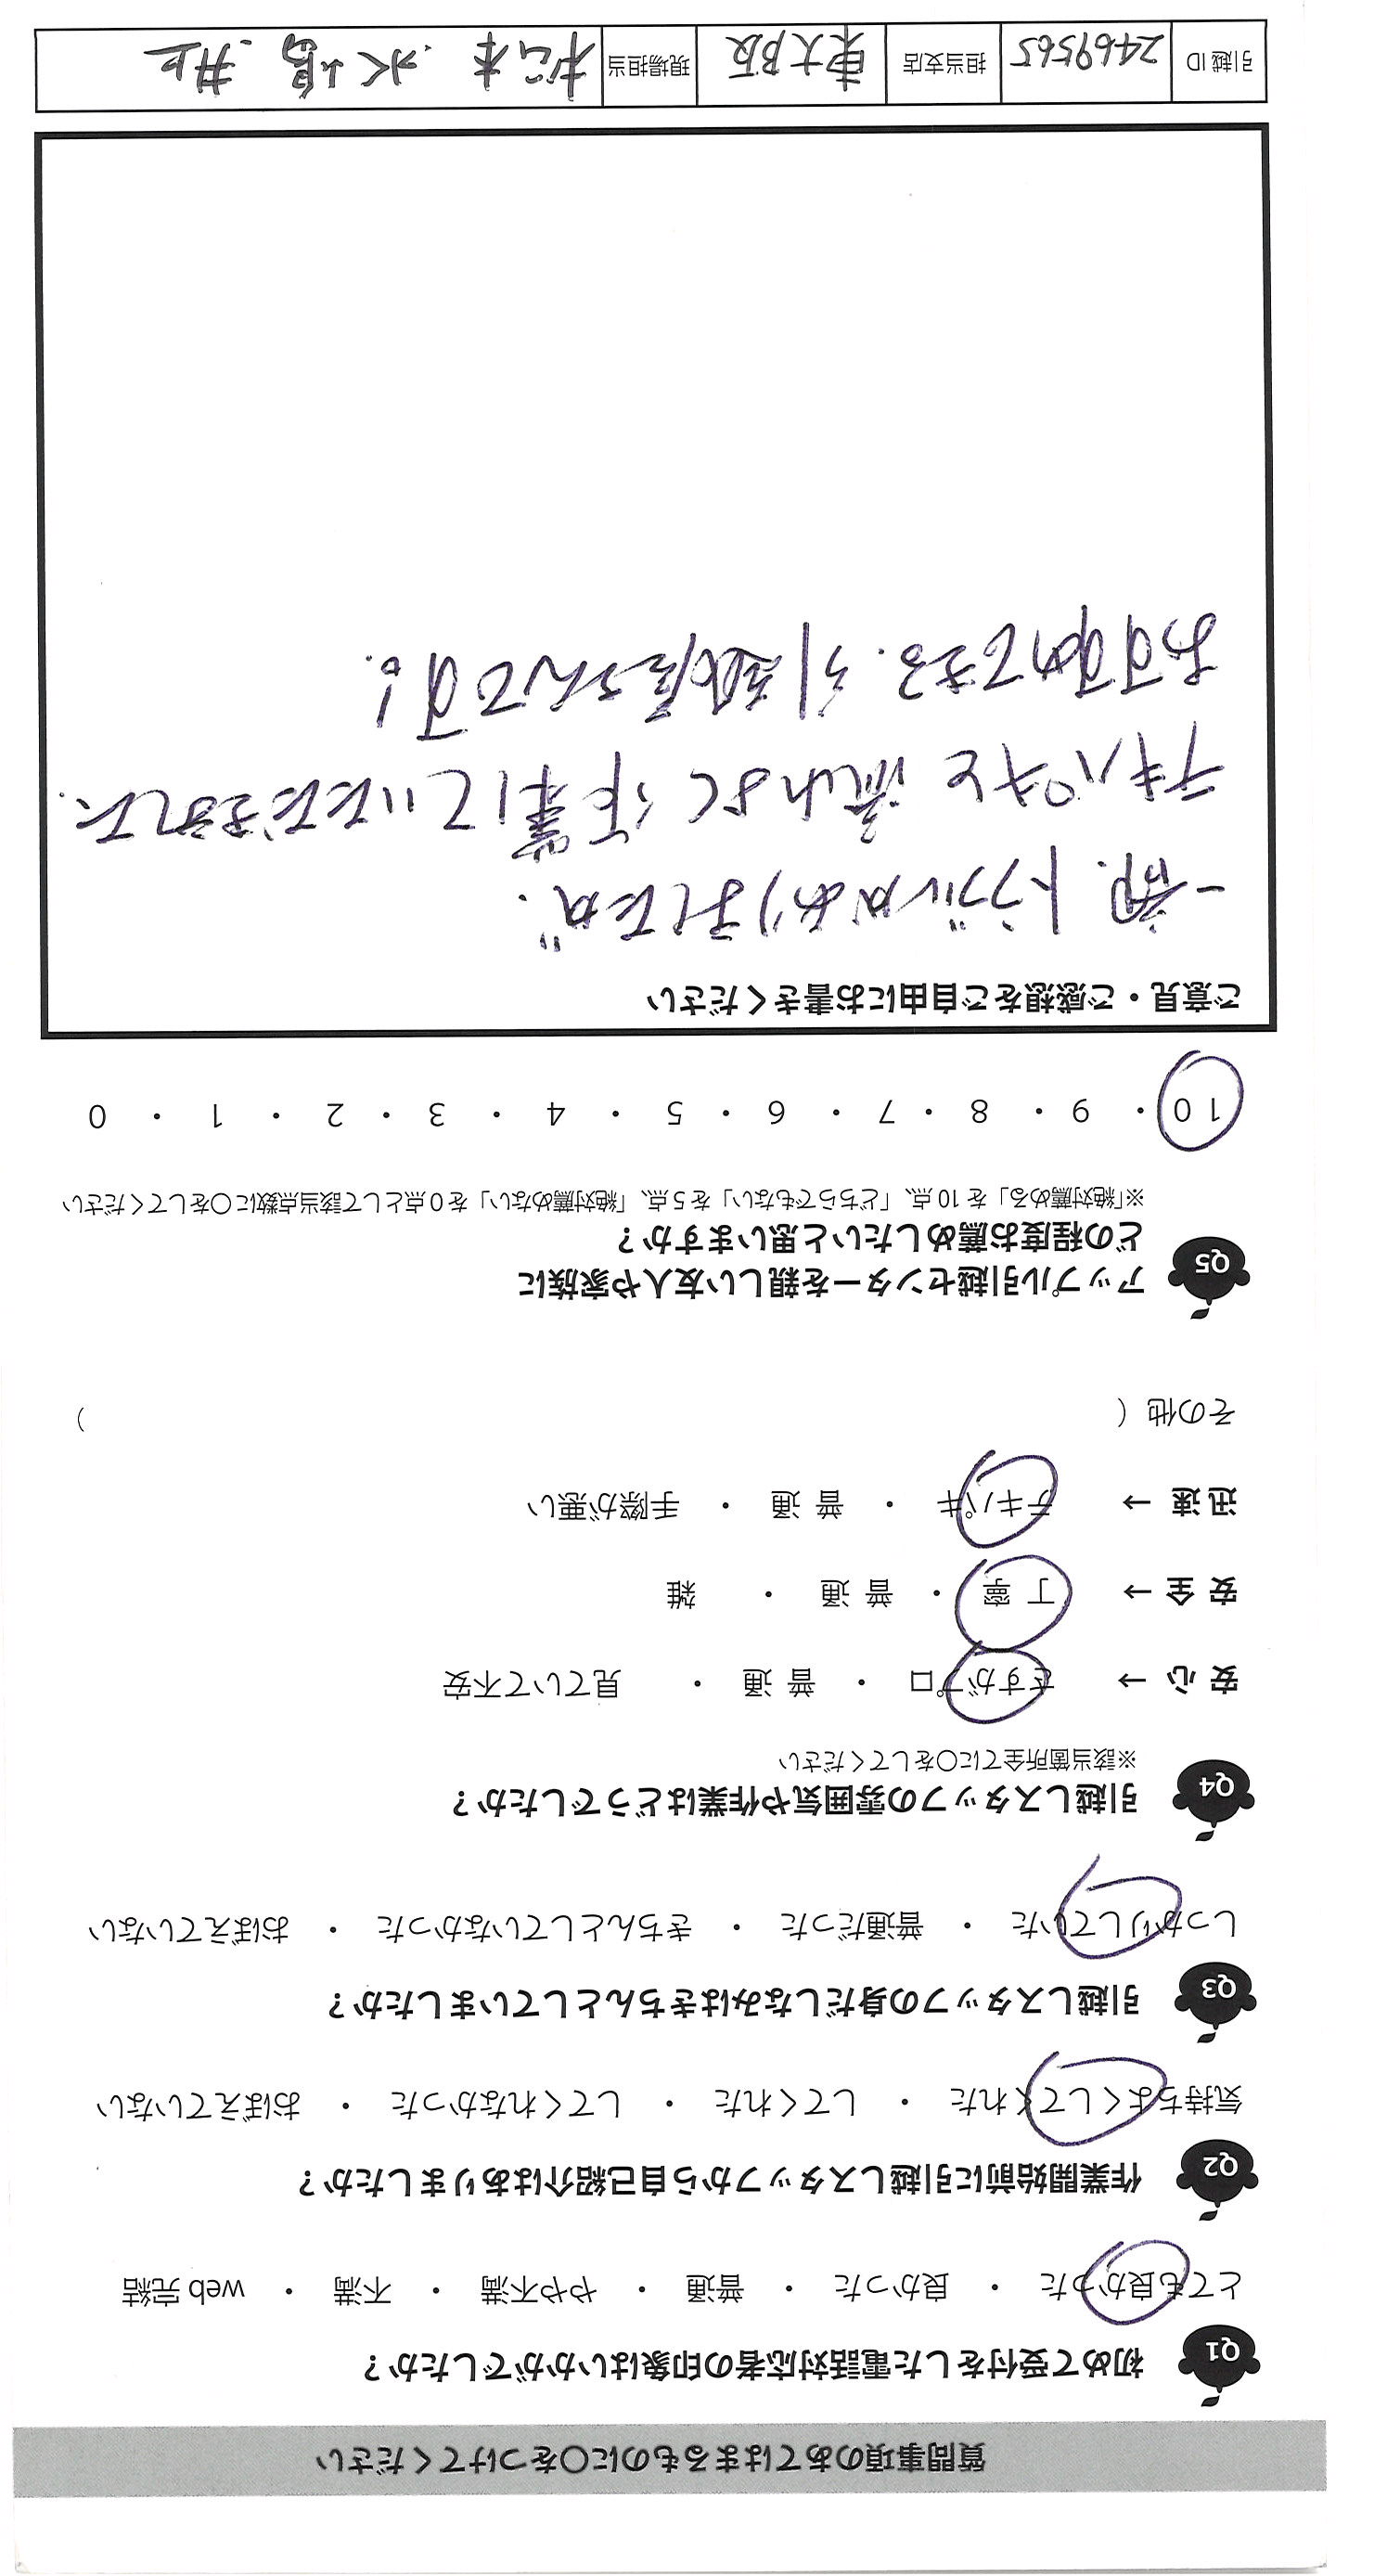 質問事項のあてはまるものに○をつけてください
Q1 初めて受付をした電話対応者の印象はいかがでしたか？
とても良かった ・ 良かった ・ 普通 ・ やや不満 ・ 不満 ・ web 完結
Q2 作業開始前に引越しスタッフから自己紹介はありましたか？
気持ちよくしてくれた ・ してくれた ・ してくれなかった ・ おぼえていない
Q3 引越しスタッフの身だしなみはきちんとしていましたか？
しっかりしていた ・ 普通だった ・ きちんとしていなかった ・ おぼえていない
Q4 引越しスタッフの雰囲気や作業はどうでしたか？
※該当箇所全てに○をしてください
安 心 → さすがプロ ・ 普 通 ・ 見ていて不安
安 全 → 丁 寧 ・ 普 通 ・ 雑
迅 速 → テキパキ ・ 普 通 ・ 手際が悪い
その他（ ）
Q5 アップル引越センターを親しい友人や家族に
どの程度お薦めしたいと思いますか？
※「絶対薦める」を 10 点、「どちらでもない」を 5 点、「絶対薦めない」を 0 点として該当点数に○をしてください
10 ・ 9 ・ 8 ・ 7 ・ 6 ・ 5 ・ 4 ・ 3 ・ 2 ・ 1 ・ 0
ご意見・ご感想をご自由にお書きください
一部、トラブルがありましたが、
テキパキと 流れよく 作業していただきまして、
おすすめできる、引越屋さんです！
引越 ID 2469565 担当支店 東大阪 現場担当 松本 水嶋 井上